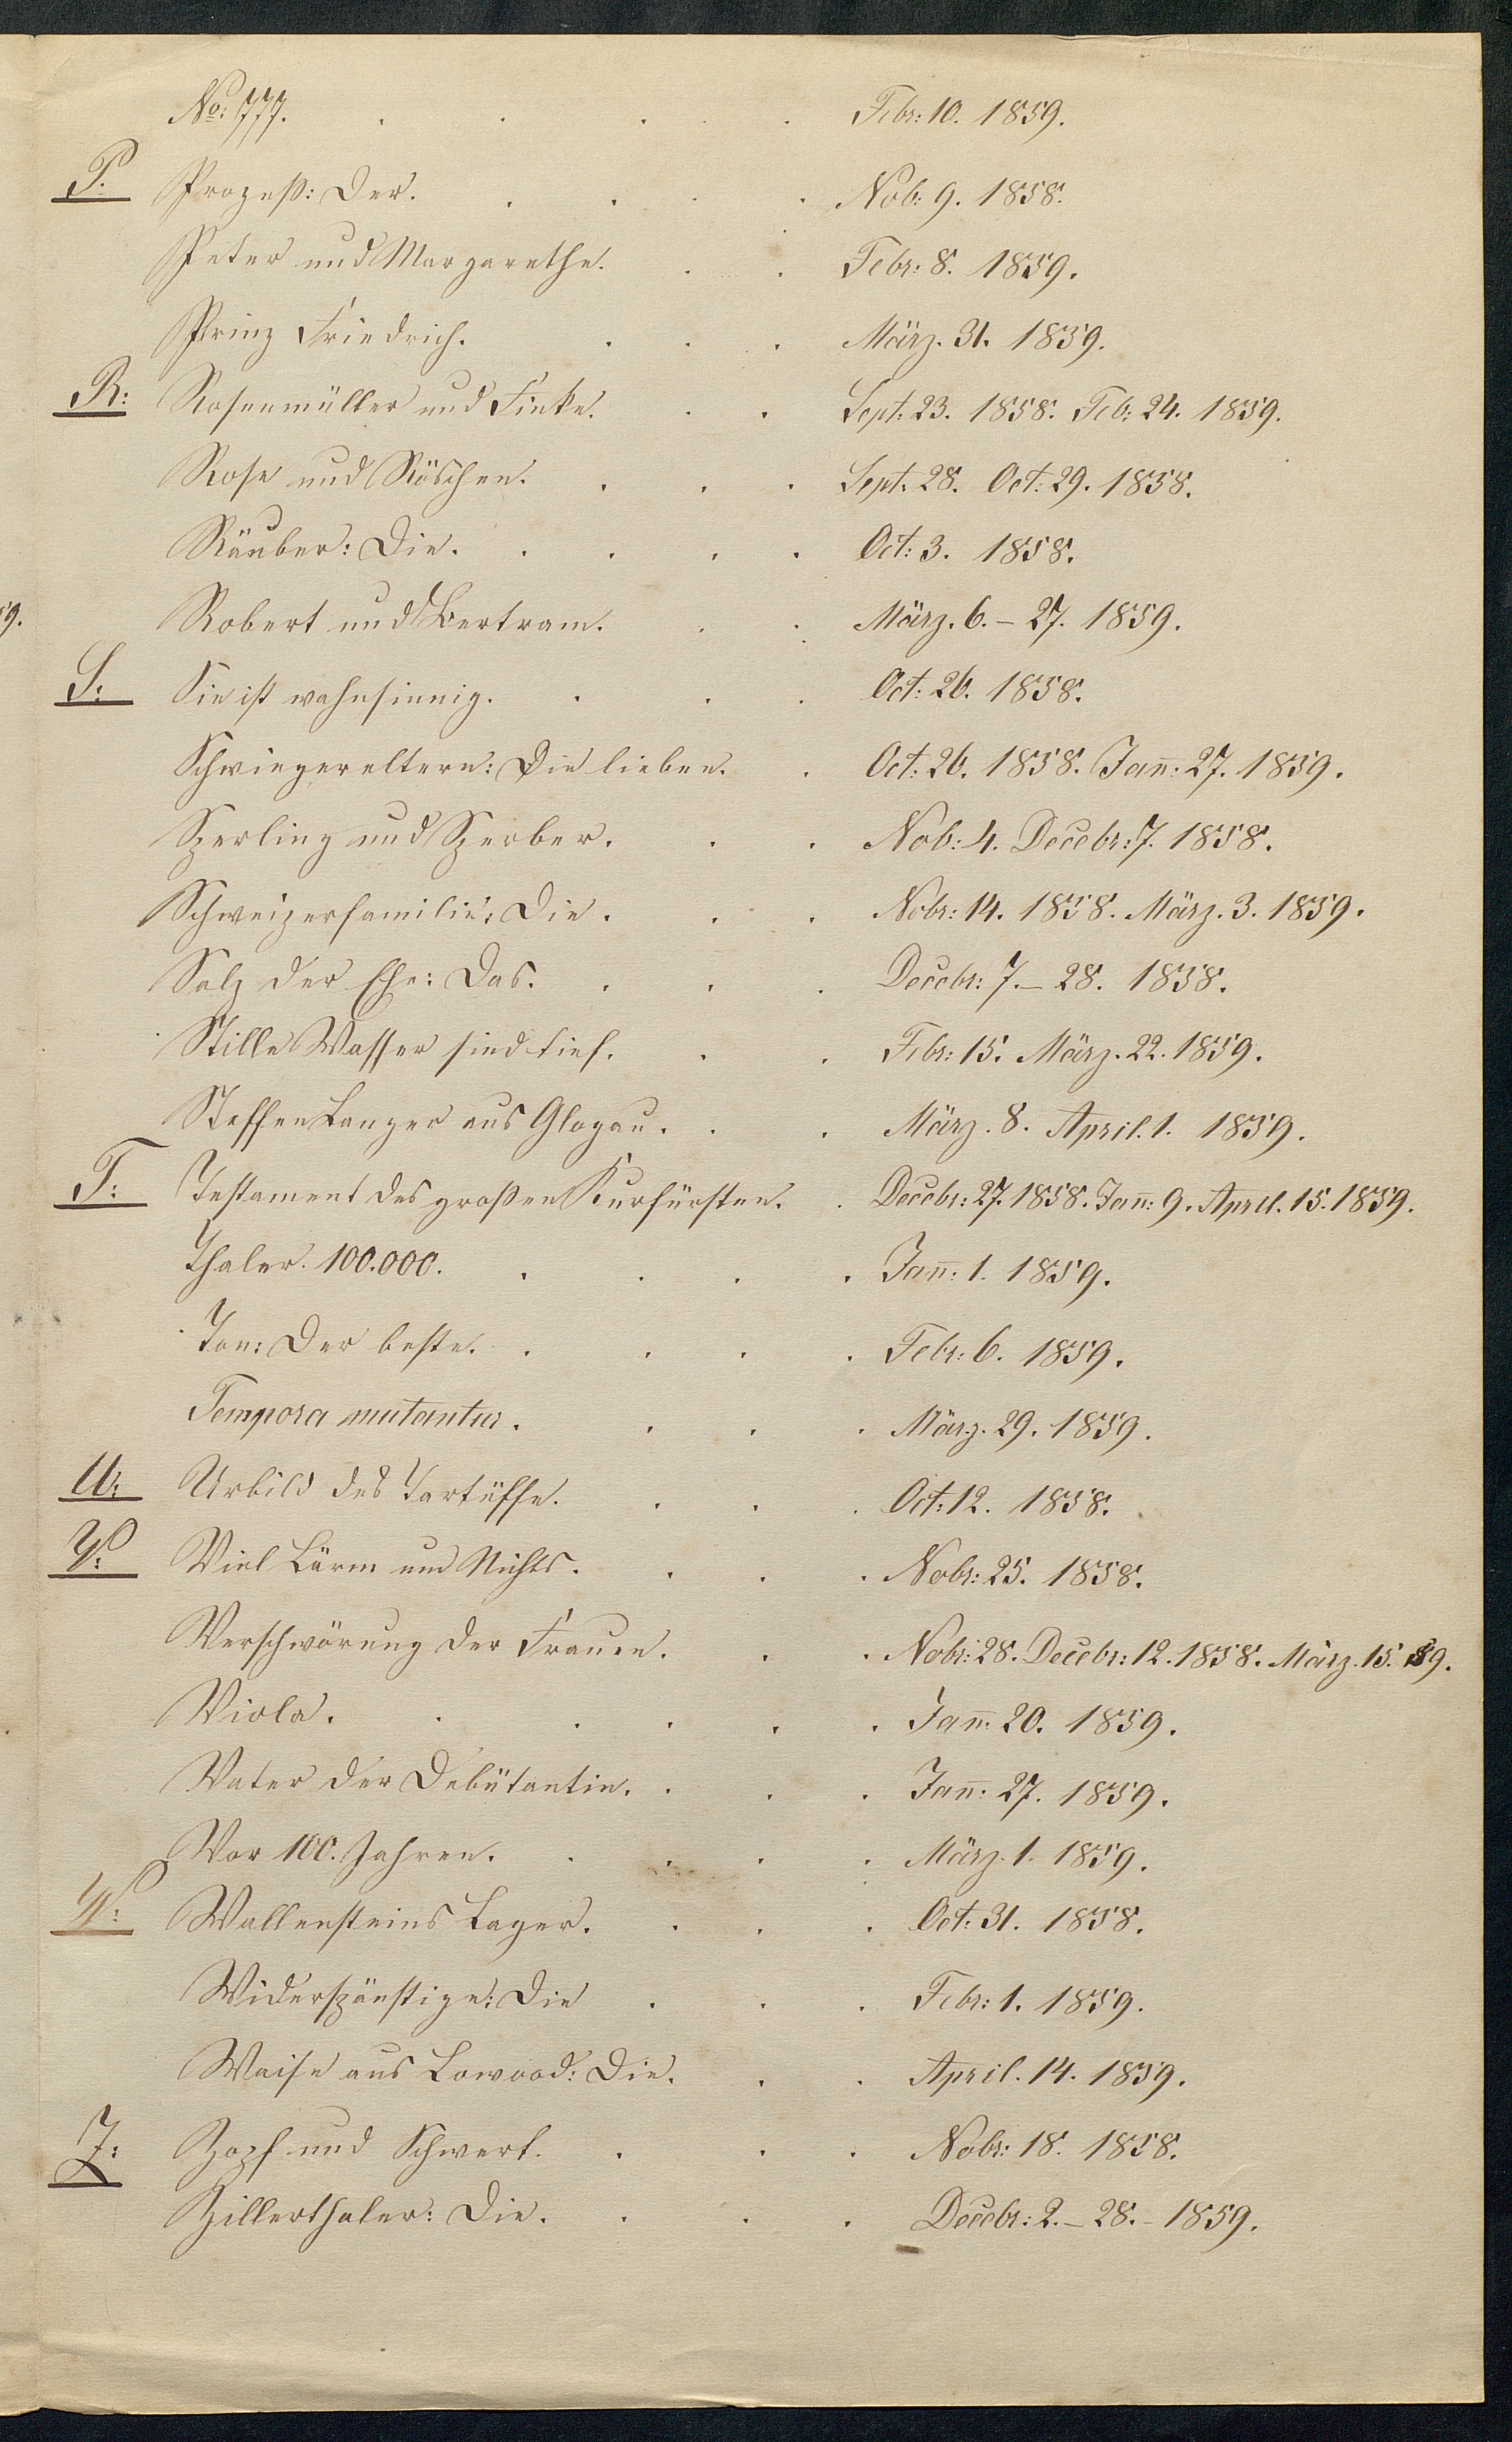 No: 777. . . . . . Febr: 10. 1859.
P. Prozeß: Der. . . . . Nob: 9. 1858.
Peter und Margarethe. . . Febr: 8. 1859.
Prinz Friedrich. . . . März. 31. 1859.
R: Rosenmüller und Finke. . . Sept: 23. 1858. Feb: 24. 1859.
Rose und Röschen. . . . Sept. 28. Oct: 29. 1858.
Räuber: Die. . . . . Oct: 3. 1858.
59. Robert und Bertram. . . März. 6. – 27. 1859.
S: Sie ist wahnsinnig. . . . Oct: 26. 1858.
Schwiegereltern: Die lieben. . Oct: 26. 1858. Jan̄: 27. 1859.
Sperling und Sperber. . . Nob: 4. Decebr: 7. 1858.
Schweizerfamilie: Die. . . Nobr: 14. 1858. März. 3. 1859.
Salz der Ehe: Das. . . . Decebr: 7. – 28. 1858.
Stille Wasser sind tief. . . Febr: 15. März. 22. 1859.
Steffen Langer aus Glogau. . . März. 8. April. 1. 1859.
T: Testament des großen Kurfürsten. . Decebr: 27. 1858. Jan̄: 9. April. 15. 1859.
Thaler. 100.000. . . . . Jan̄: 1. 1859.
Ton: Der beste. . . . . Febr: 6. 1859.
Tempora mutantur. . . . März. 29. 1859.
U: Urbild des Tartüffe. . . . Oct: 12. 1858.
V: Viel Lärm um Nichts. . . . Nobr: 25. 1858.
Verschwörung der Frauen. . . Nobr: 28. Decebr: 12. 1858. März. 15. 59.
Viola. . . . . . Jan̄: 20. 1859.
Vater der Debütantin. . . . Jan̄: 27. 1859.
Vor 100. Jahren. . . . . März. 1. 1859.
W: Wallensteins Lager. . . . Oct: 31. 1858.
Widerspänstige: Die . . . Febr: 1. 1859.
Waise aus Lowood: Die. . . April. 14. 1859.
Z: Zopf und Schwert. . . . Nobr: 18. 1858.
Zillerthaler: Die. . . . Decebr: 2. – 28. – 1859.